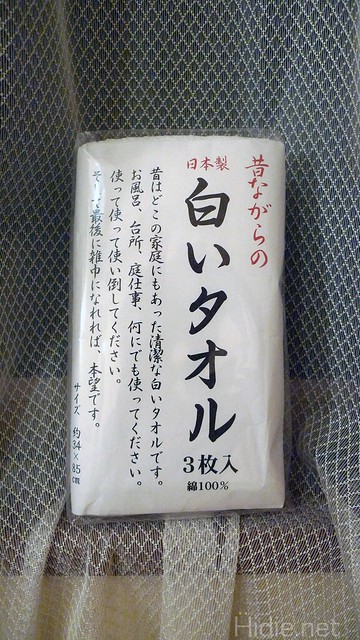 昔ながらの
日本製
白いタオル
3枚入
綿100%
昔はどこの家庭にもあった清潔な白いタオルです。
お風呂、台所、庭仕事、何にでも使ってください。
使って使って使い倒してください。
そして最後に雑巾になれれば、本望です。
サイズ 約34×85cm
Hidie.net